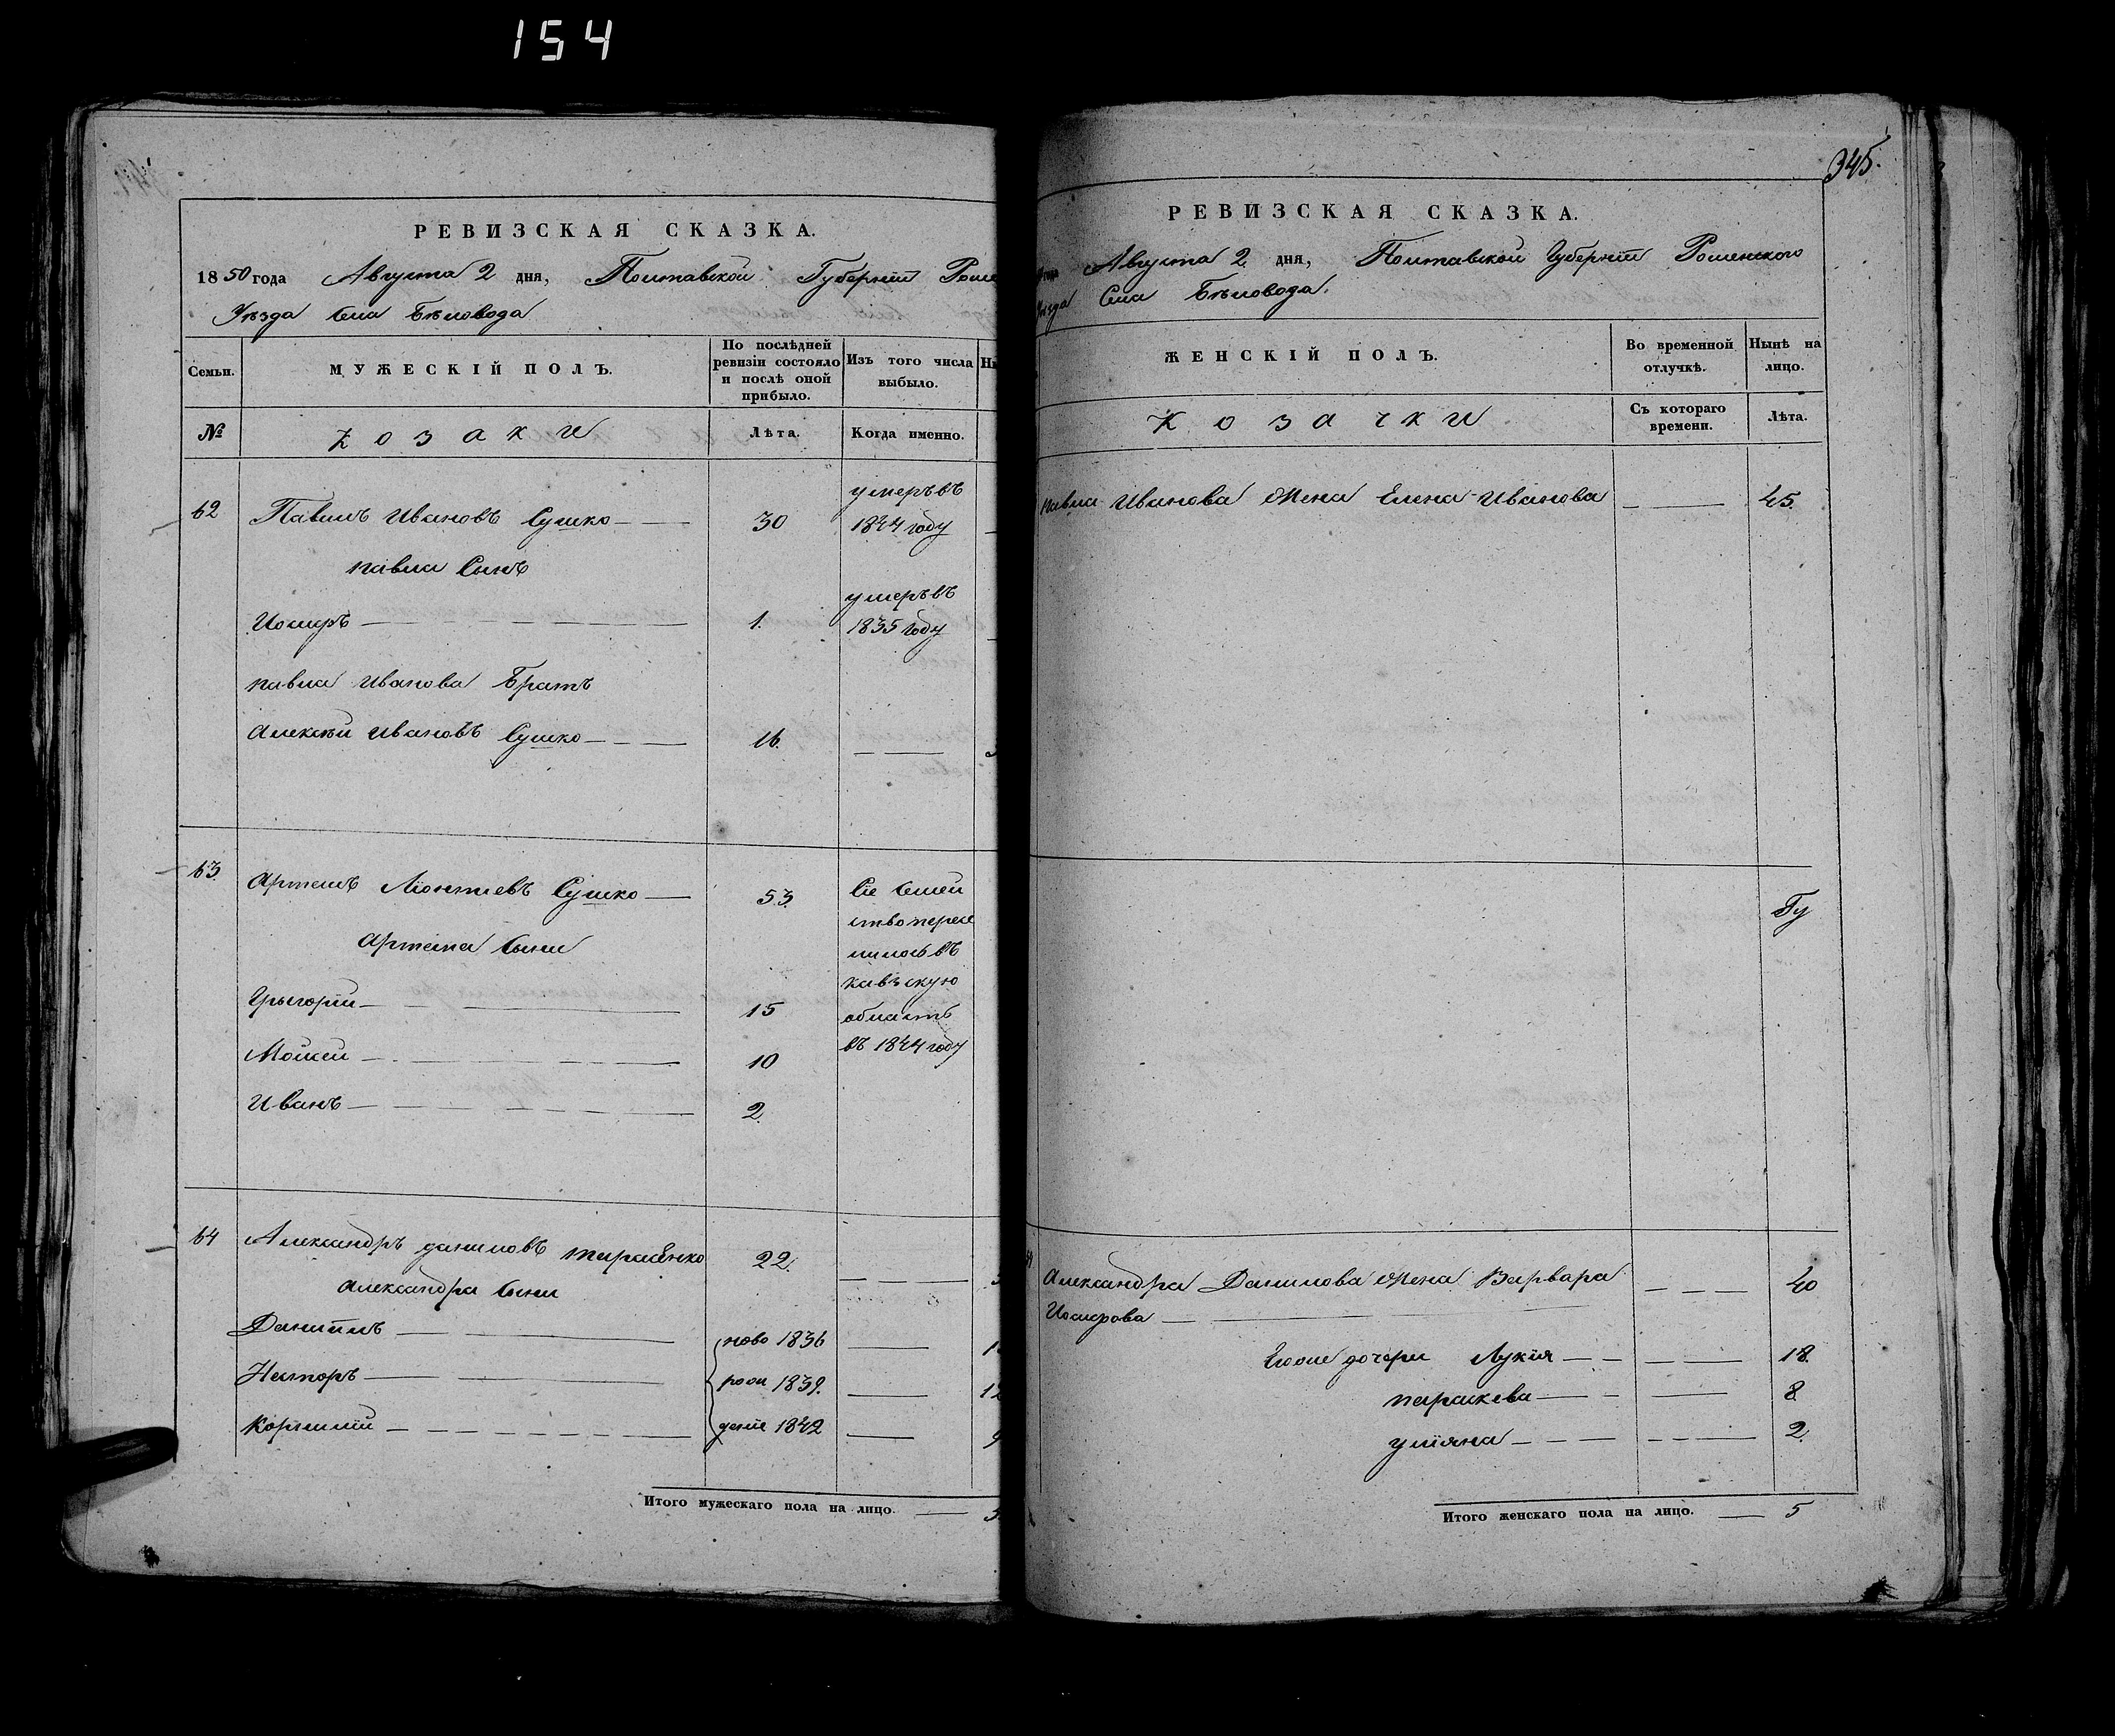 154
РЕВИЗСКАЯ СКАЗКА.
1850 года Августа 2 дня, Полтавской Губерніи Роме
Уѣзда Села Бѣловода
Семьи.
МУЖЕСКІЙ ПОЛЪ.
По послѣдней ревизіи состояло и послѣ оной прибыло.
Изъ того числа выбыло.
№
Козаки
Лѣта.
Когда именно.
62
Павелъ Ивановъ Сушко
30
умеръ въ
1844 году
павла Сынъ
Иосифъ
1.
умеръ въ
1835 году
павла Иванова Братъ
Алексѣй Ивановъ Сушко
16.
63.
Артемъ Лѣонтіевъ Сушко
53.
Сіе Семей
ство пересе
лилось въ
кавзскую
область
въ 1844 году
Артема Сыни
Грыгорій
15
Мойсей
10
Иванъ
2.
64
Александръ даниловъ тарасенко
22.
Александра Сыни
Даниилъ
ново 1836
Несторъ
рож 1839.
Корнилій
деніе 1842
Итого мужескаго пола на лицо.
345.
РЕВИЗСКАЯ СКАЗКА.
года Августа 2 дня, Полтавской Губерніи Роменского
Уѣзда Села Бѣловода.
ЖЕНСКІЙ ПОЛЪ.
Во временной отлучкѣ.
Нынѣ на лицо.
Козачки
Съ котораго времени.
Лѣта.
павла Иванова жена Елена Иванова
45.
Александра Данилова жена Варвара
40
Иосифова
Егоже дочери Лукія
18.
параскева
8
уліяна
2.
Итого женскаго пола на лицо.
5